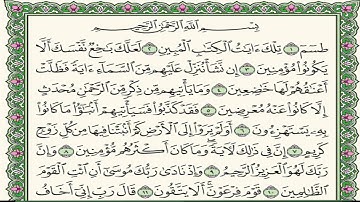 بِسْمِ اللَّهِ الرَّحْمَٰنِ الرَّحِيمِ
طسٓمٓ ١ تِلْكَ ءَايَٰتُ ٱلْكِتَٰبِ ٱلْمُبِينِ ٢ لَعَلَّكَ بَٰخِعٌ نَّفْسَكَ أَلَّا
يَكُونُوا۟ مُؤْمِنِينَ ٣ إِن نَّشَأْ نُنَزِّلْ عَلَيْهِم مِّنَ ٱلسَّمَآءِ ءَايَةً فَظَلَّتْ
أَعْنَٰقُهُمْ لَهَا خَٰضِعِينَ ٤ وَمَا يَأْتِيهِم مِّن ذِكْرٍ مِّنَ ٱلرَّحْمَٰنِ مُحْدَثٍ
إِلَّا كَانُوا۟ عَنْهُ مُعْرِضِينَ ٥ فَقَدْ كَذَّبُوا۟ فَسَيَأْتِيهِمْ أَنۢبَٰٓؤُا۟ مَا كَانُوا۟
بِهِۦ يَسْتَهْزِءُونَ ٦ أَوَلَمْ يَرَوْا۟ إِلَى ٱلْأَرْضِ كَمْ أَنۢبَتْنَا فِيهَا مِن كُلِّ زَوْجٍ
كَرِيمٍ ٧ إِنَّ فِى ذَٰلِكَ لَءَايَةً وَمَا كَانَ أَكْثَرُهُم مُّؤْمِنِينَ ٨ وَإِنَّ
رَبَّكَ لَهُوَ ٱلْعَزِيزُ ٱلرَّحِيمُ ٩ وَإِذْ نَادَىٰ رَبُّكَ مُوسَىٰٓ أَنِ ٱئْتِ ٱلْقَوْمَ
ٱلظَّٰلِمِينَ ١٠ قَوْمَ فِرْعَوْنَ أَلَا يَتَّقُونَ ١١ قَالَ رَبِّ إِنِّىٓ أَخَافُ